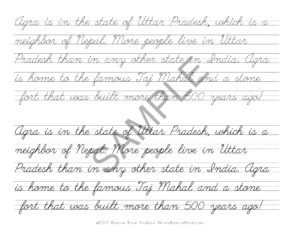 Agra is in the state of Uttar Pradesh, which is a
neighbor of Nepal. More people live in Uttar
Pradesh than in any other state in India. Agra
is home to the famous Taj Mahal and a stone
fort that was built more than 500 years ago!
Agra is in the state of Uttar Pradesh, which is a
neighbor of Nepal. More people live in Uttar
Pradesh than in any other state in India. Agra
is home to the famous Taj Mahal and a stone
fort that was built more than 500 years ago!
SAMPLE
©2017